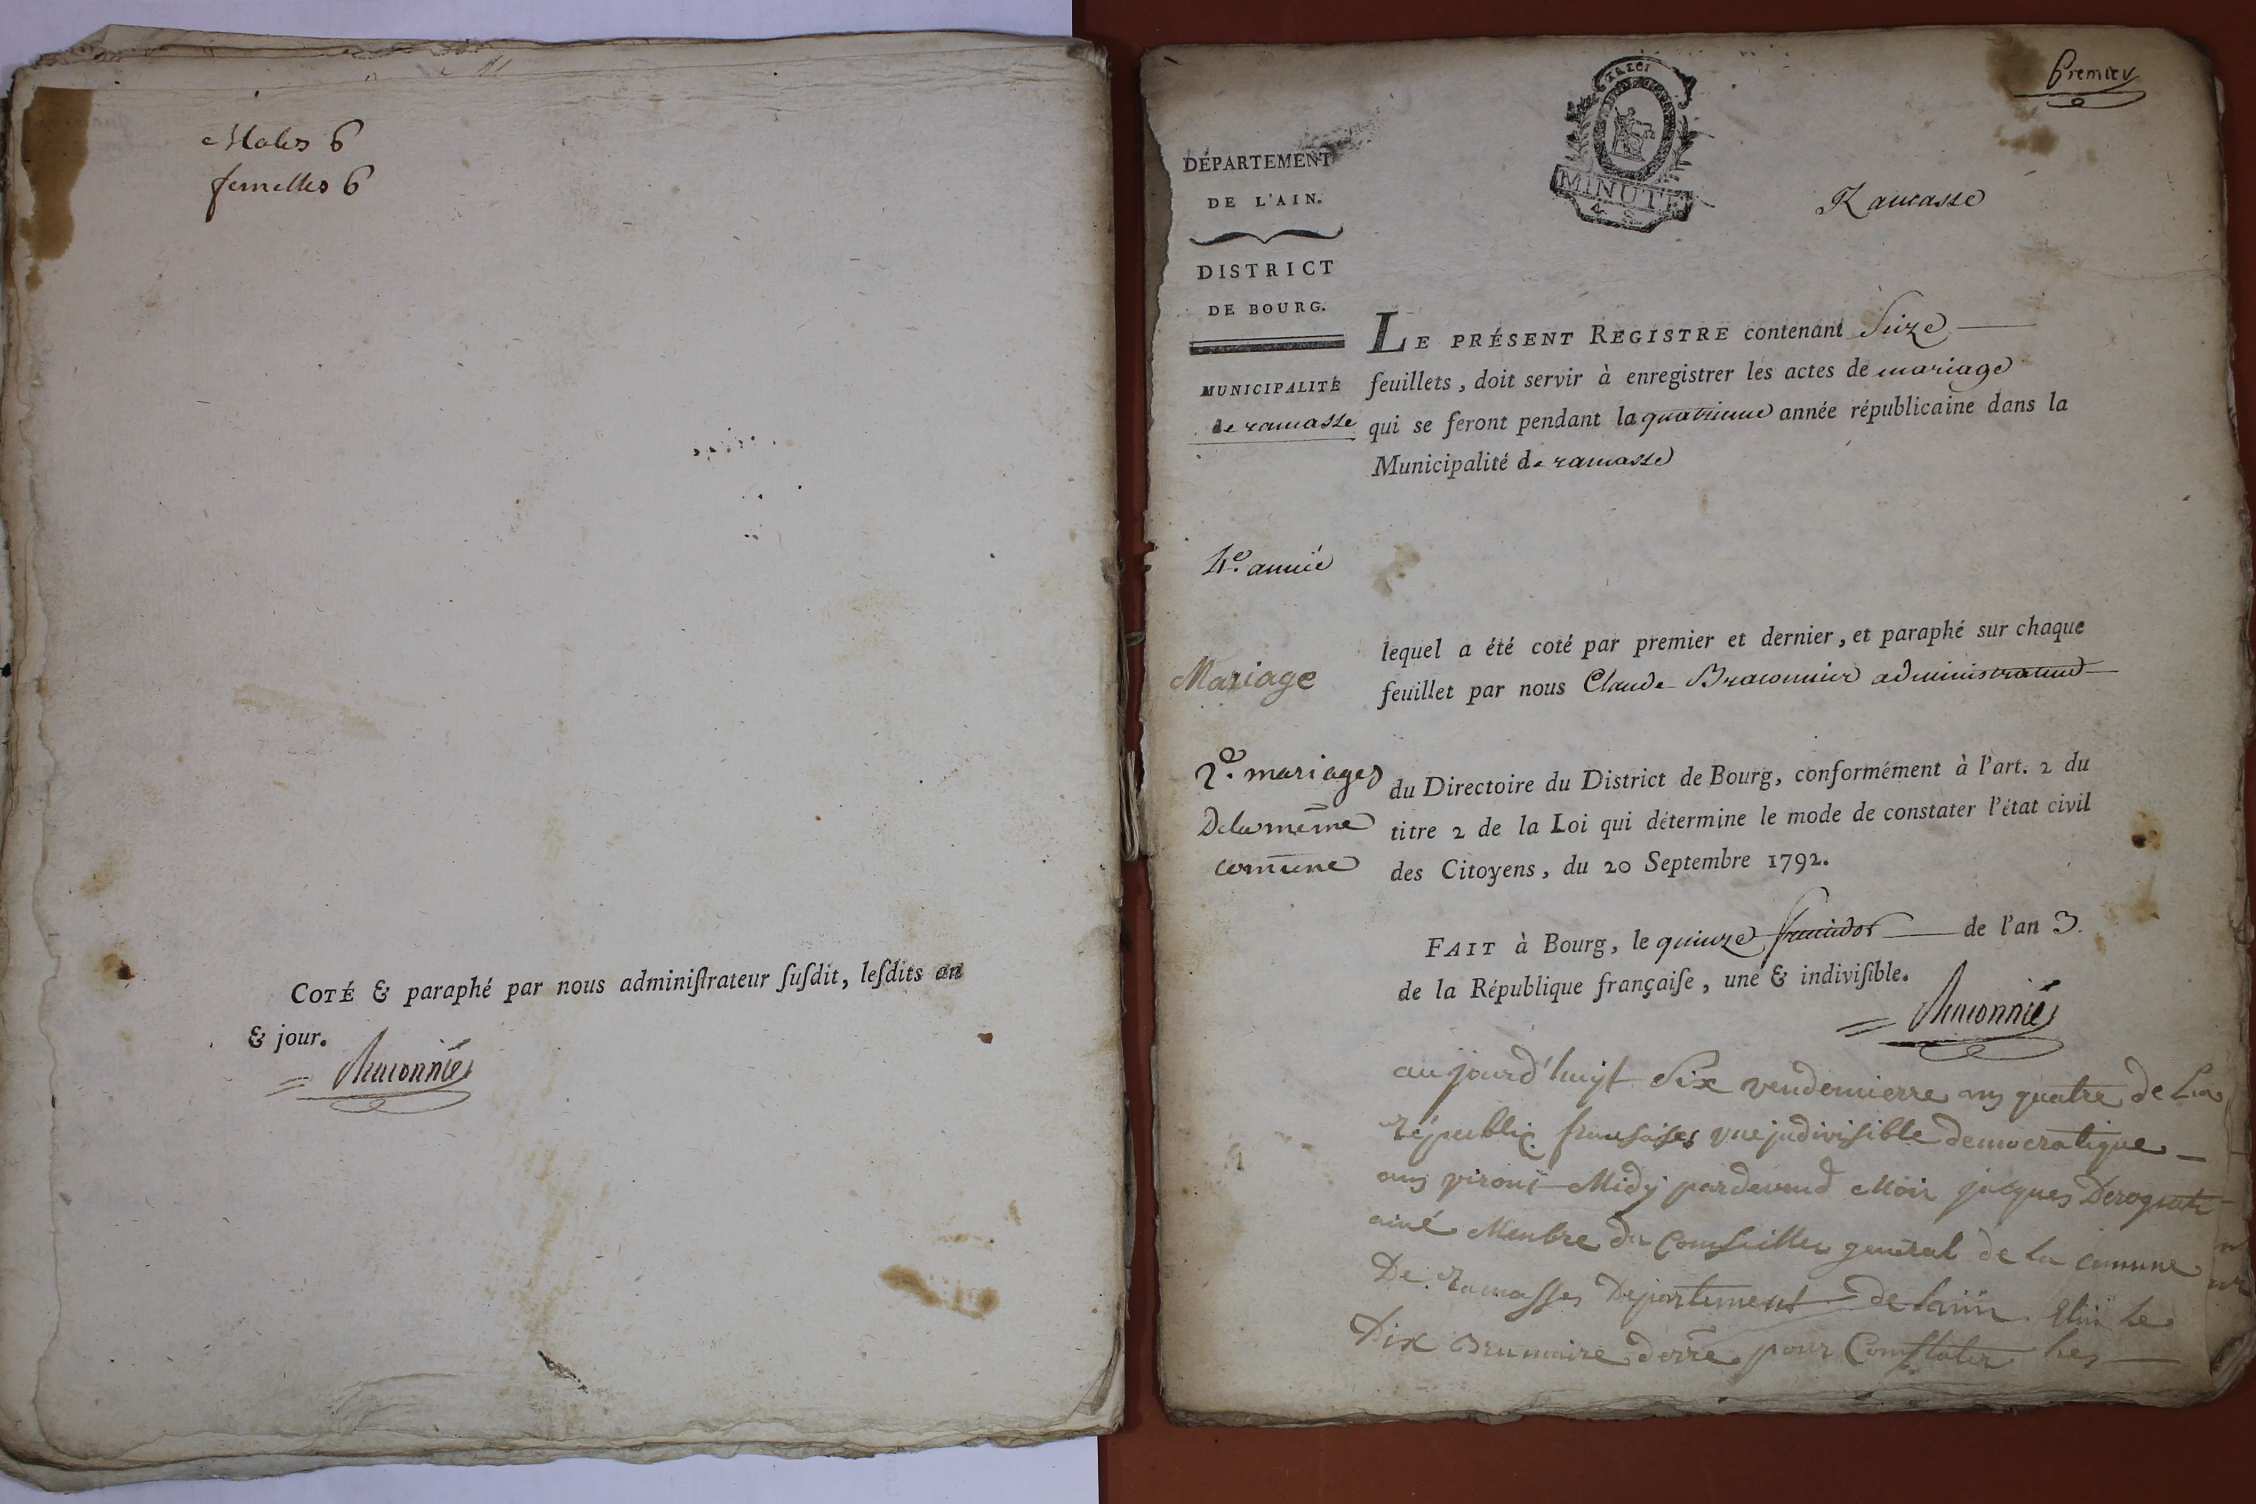 Males 6
femelles 6
COTÉ & paraphé par nous adminiſtrateur ſuſdit, leſdits an
& jour.
Braconnié
Premier
MINUTE
DÉPARTEMENT
DE L'AIN.
DISTRICT
DE BOURG.
MUNICIPALITÉ
de ramasse
4e. année
Mariage
2e. mariages
De la même
comune
Ramasse
LE PRÉSENT REGISTRE contenant Seize
feuillets, doit servir à enregistrer les actes de mariage
qui se feront pendant la quatrieme année républicaine dans la
Municipalité de ramasse
lequel a été coté par premier et dernier, et paraphé sur chaque
feuillet par nous Claude Braconnier administrateur
du Directoire du District de Bourg, conformément à l'art. 2 du
titre 2 de la Loi qui détermine le mode de constater l'état civil
des Citoyens, du 20 Septembre 1792.
FAIT à Bourg, le quinze fructidor de l'an 3.
de la République françaiſe, une & indiviſible.
Braconnié
aujourd'huyt Six vendemierre ans quatre de La
républic fransaises une jndivisible democratique
ans viront Midÿ pardevend Moir jacques
ainé Menbre du Conseilles general de la comune
De ramasses Departement de lain Elui le
Dix Brumaire derre pour Constater les